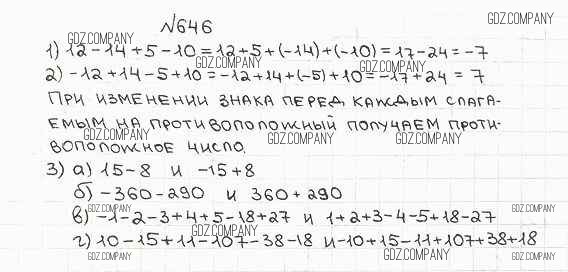 №646
GDZ.COMPANY
GDZ.COMPANY
1) 12-14+5-10=12+5+(-14)+(-10)=17-24=-7
GDZ.COMPANY
GDZ.COMPANY
2) -12+14-5+10=-12+14+(-5)+10=-17+24=7
ПРИ ИЗМЕНЕНИИ ЗНАКА ПЕРЕД КАЖДЫМ СЛАГА-
ЕМЫМ НА ПРОТИВОПОЛОЖНЫЙ ПОЛУЧАЕМ ПРОТИ-
GDZ.COMPANY
GDZ.COMPANY
GDZ.COMPANY
ВОПОЛОЖНОЕ ЧИСЛО.
3) а) 15-8 и -15+8
б) -360-290 и 360+290
GDZ.COMPANY
GDZ.COMPANY
в) -1-2-3+4+5-18+27 и 1+2+3-4-5+18-27
GDZ.COMPANY
г) 10-15+11-107-38-18 и -10+15-11+107+38+18
GDZ.COMPANY
GDZ.COMPANY
GDZ.COMPANY